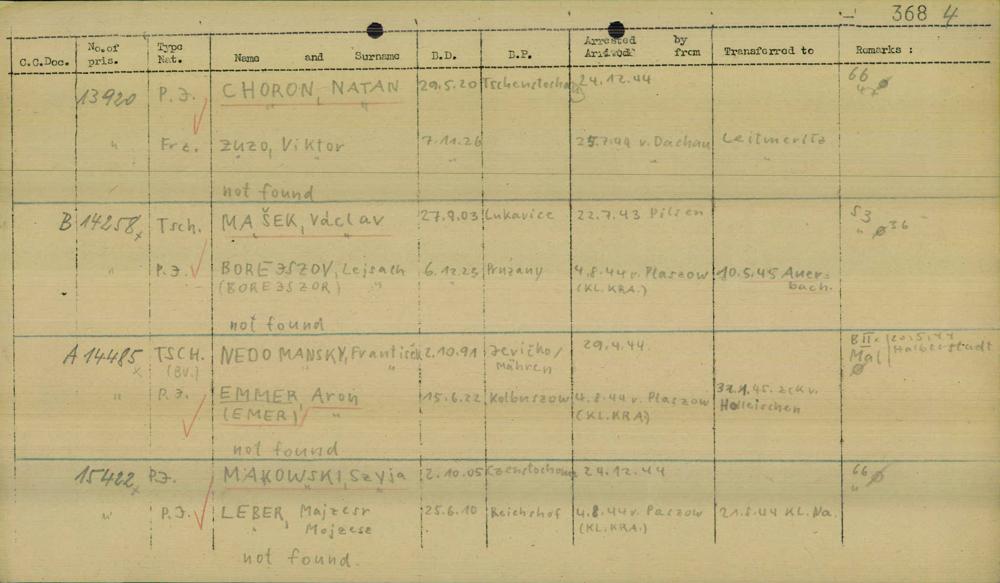 368 4
C.C.Doc. No.of pris. Type Nat. Name and Surname B.D. B.P. Arrested Arrived by from Transferred to Remarks :
13920 P.J. CHORON, NATAN 29.5.20 Tschenstochau 24.12.44 66
" Frz. ZUZO, Viktor 7.11.26 25.7.44 v. Dachau Leitmeritz
not found
B 14258 Tsch. MAŠEK, Václav 27.9.03 Lukavice 22.7.43 Pilsen 53
" 36
" P.J. BOREJSZOV, Lejsach 6.12.25 Pružany 4.8.44 v. Plaszow 10.5.45 Auer-
(BOREJSZOR) " (KL.KRA.) bach.
not found
A 14485 TSCH. NEDOMANSKY, František 2.10.91 Jevičko/ 29.4.44. BII. 20.5.44
(BV.) " Mähren Mal Halberstadt
" P.J. EMMER Aron 15.6.22 Kolbuszow 4.8.44 v. Plaszow
(EMER) " (KL.KRA) Holleischen
not found
15422 P.J. MAKOWSKI, Szyja 2.10.05 Czenstochau 24.12.44 66
" P.J. LEBER, Majzesr 25.6.10 Reichshof 4.8.44 v. Paszow 21.8.44 KL.Na.
" Mojzesz (KL.KRA.)
not found.